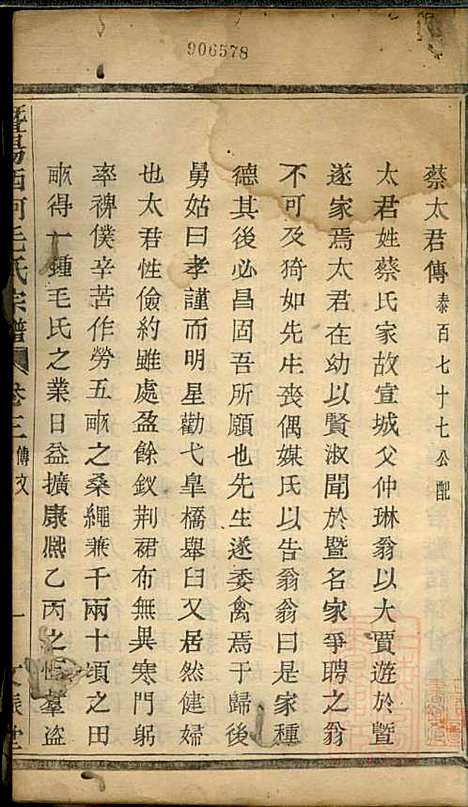 906578
蔡太君傳 泰百七十七公配
太君姓蔡氏家故宣城父仲琳翁以大賈遊於暨
遂家焉太君在幼以賢淑聞於暨名家爭聘之翁
不可及猗如先生喪偶媒氏以告翁翁曰是家種
德其後必昌固吾所願也先生遂委禽焉于歸後
舅姑曰孝謹而明星勸弋皐橋舉臼又居然健婦
也太君性儉約雖處盈餘釵荆裙布無異寒門躬
率裨僕辛苦作勞五畝之桑繩兼千兩十頃之田
畝得一鍾毛氏之業日益擴康熈乙丙之羣盜
暨陽西河毛氏宗譜 卷三 傳文 一 堂